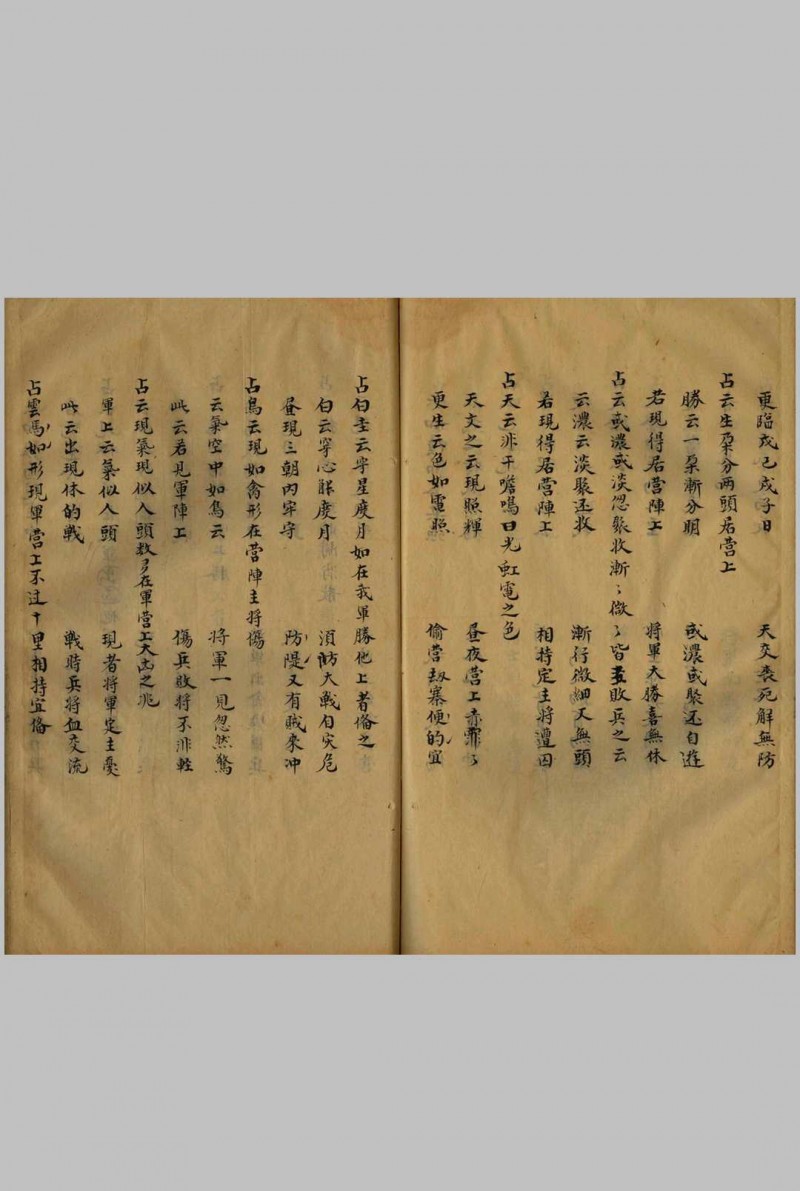 更臨戊己戌子日　天交喪死解無防
占云生朶分兩頭居營上
勝云一朶漸分明　或濃或聚还自遊
若現得居營陣上　將軍大勝喜無休
占云或濃或淡忽聚收漸〻微〻皆主敗兵之云
云濃云淡聚还收　漸行微細天無頭
若現得居營陣上　相持定主將遭囚
占天云非干啨鳴日光虹電之色
天文之云現照輝　昼夜营上赤霏〻
更生云色如電照　偷营刼寨便的宜
占白圭云穿星度月如在我軍勝他上者俻之
白云穿心賬度月　須防大戰自失危
昼現三朝內牢守　防隄又有賊来冲
占鳥云現如禽形在营陣主將傷
云氣空中如鳥云　将軍一見忽然驚
此云若見軍陣上　傷兵敗将不非輕
占云現氣現似人頭数多在軍营上大凶之兆
軍上云氣似人頭　現者将軍定主憂
此云出現休的戰　戰時兵将血交流
占雲馬如形現軍营上不过十里相持宜俻